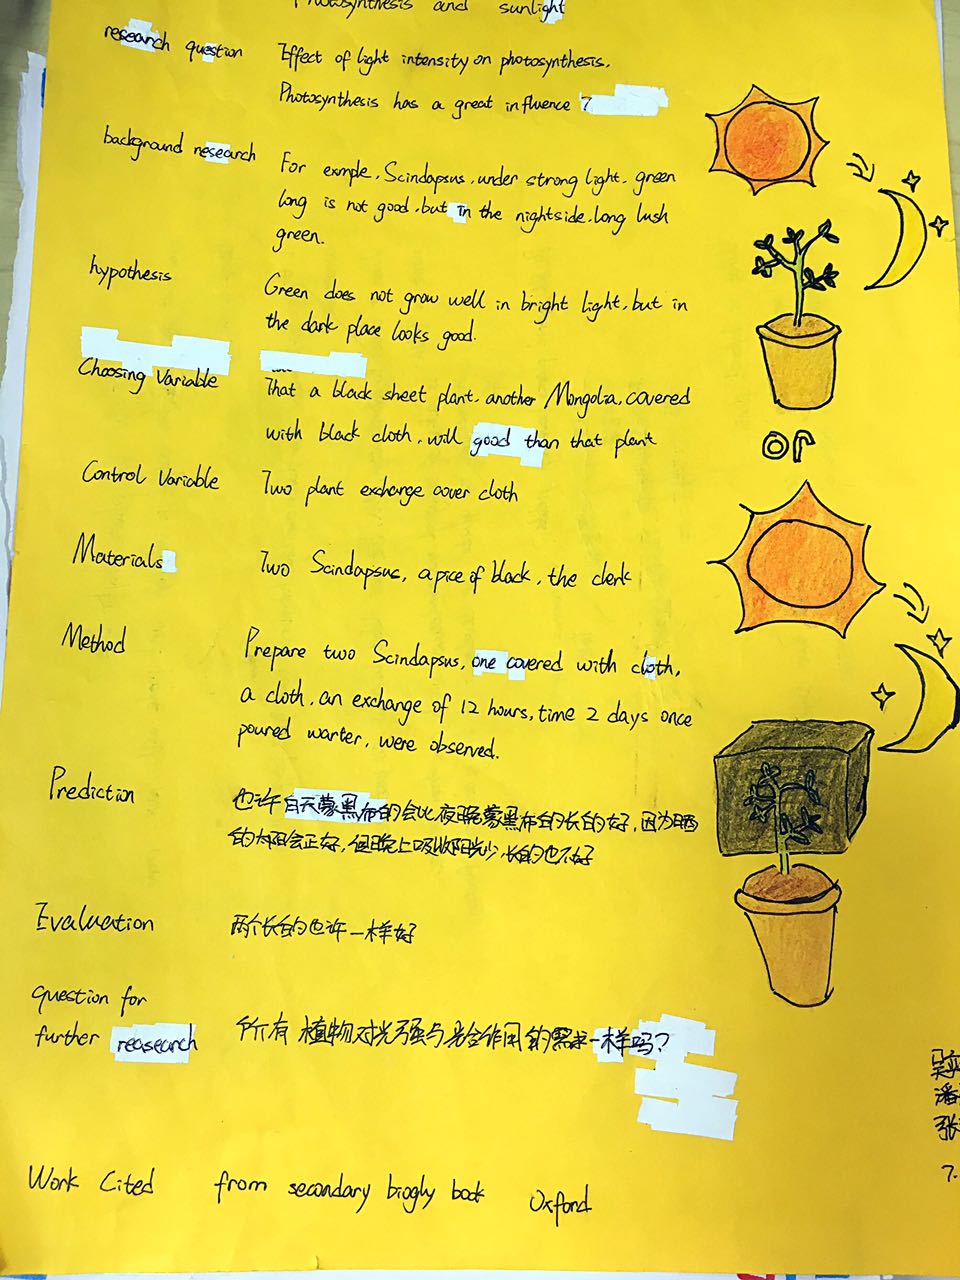 Photosynthesis and sunlight
research question
Effect of light intensity on photosynthesis.
Photosynthesis has a great influence ?
background research
For exmple, Scindapsus, under strong light, green
long is not good, but in the nightside, long lush
green.
hypothesis
Green does not grow well in bright light, but in
the dark place looks good.
Choosing Variable
That a black sheet plant, another Mongolia, covered
with black cloth, will good than that plant
Control Variable
Two plant exchange cover cloth
Materials
Two Scindapsus, a pice of black, the clerk
Method
Prepare two Scindapsus, one covered with cloth,
a cloth, an exchange of 12 hours, time 2 days once
poured warter, were observed.
Prediction
也许白天蒙黑布的会比夜晚蒙黑布的长的好，因为晒
的太阳会正好，但晚上吸收阳光少，长的也不好
Evaluation
两个长的也许一样好
question for
further reasearch
所有植物对光强与光合作用的需求一样吗？
Work Cited
from secondary biogly book Oxford
or
潘
张
7.